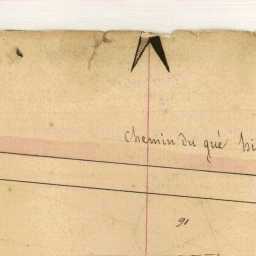 chemin du gué
91